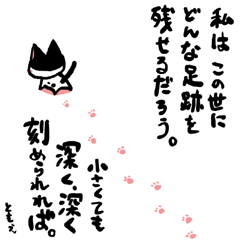 私は この世に
どんな足跡を
残せるだろう。
小さくても
深く、深く
刻められれば。
ともえ